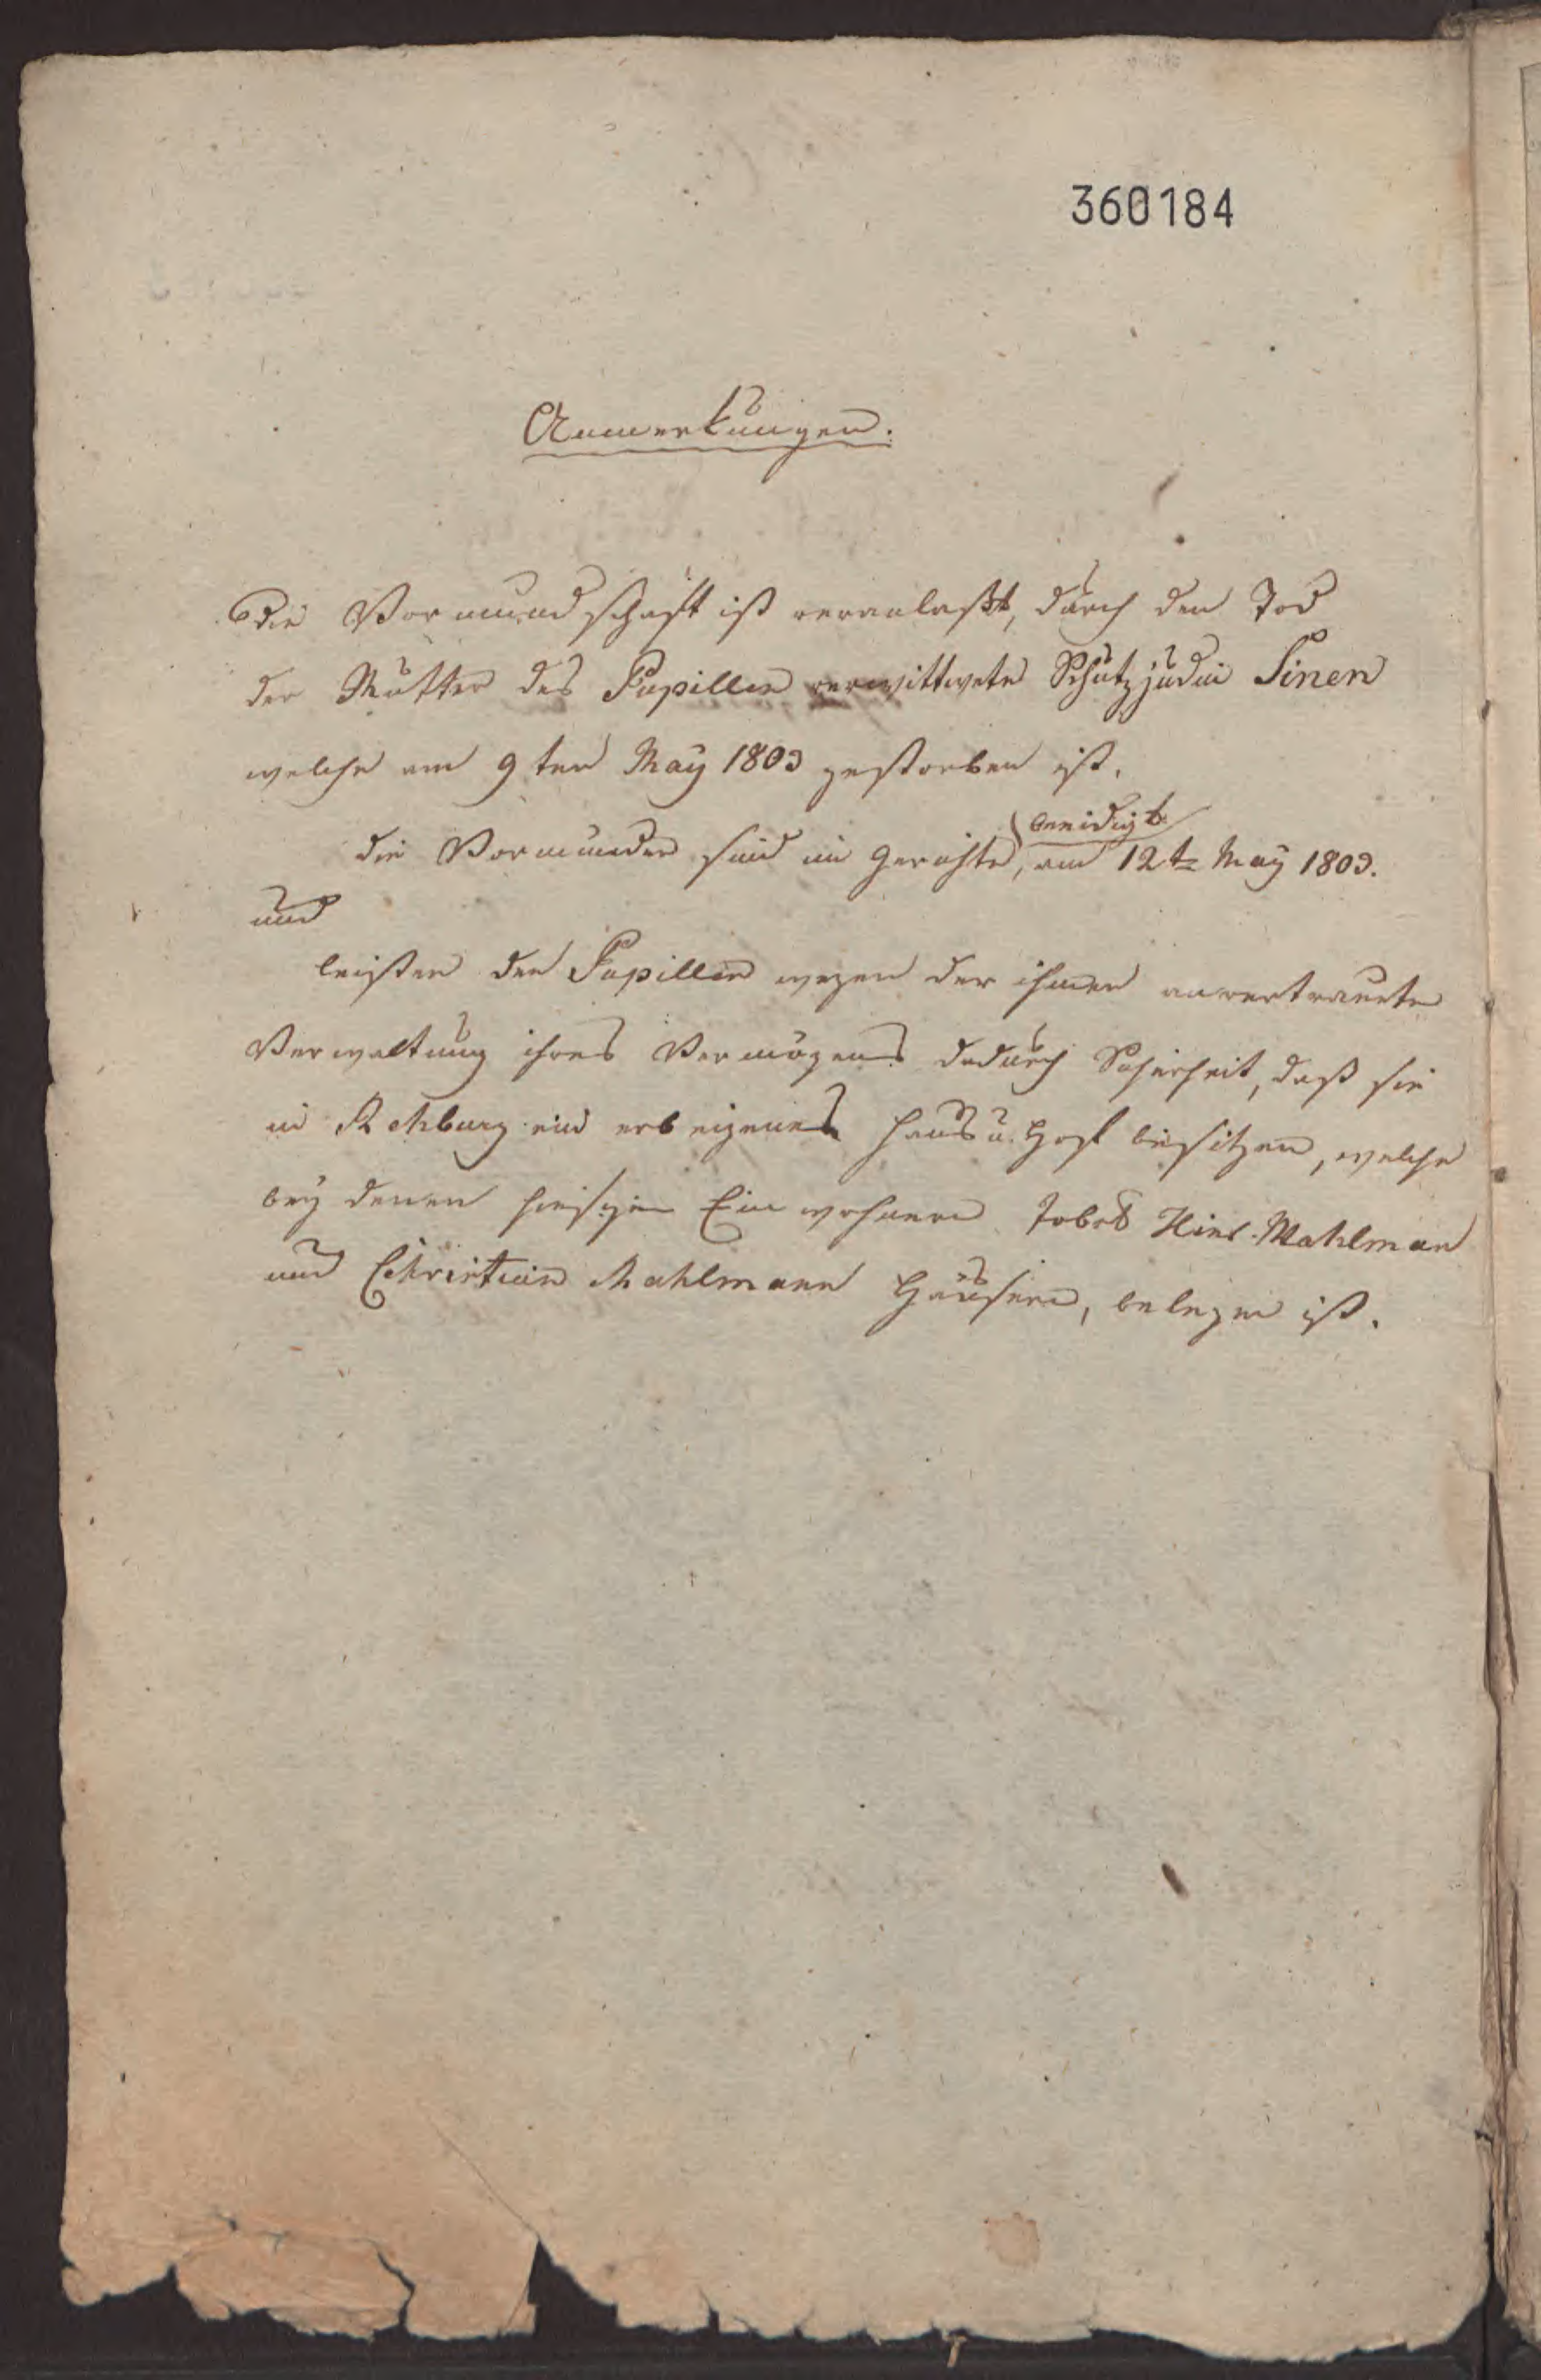 360184
Anmerkungen.
Die Vormundschaft ist veranlaßt, durch den Tod
der Mutter des Pupillen verwittwete Schutzjudin Sinen
welche am 9ten May 1803 gestorben ist.
beeidigt
die Vormünder sind im Gerichte, am 12t May 1803.
und
leisten den Pupillen wegen der ihnen anvertrauten
Verwaltung ihres Vermögens dadurch Sicherheit, daß sie
in Rehburg ein erbeigenes Haus u. Hof besitzen, welche
bey denen hiesigen Einwohnern Jobst Hinr. Mahlman
und Christian Mahlmann Häusern, belegen ist.